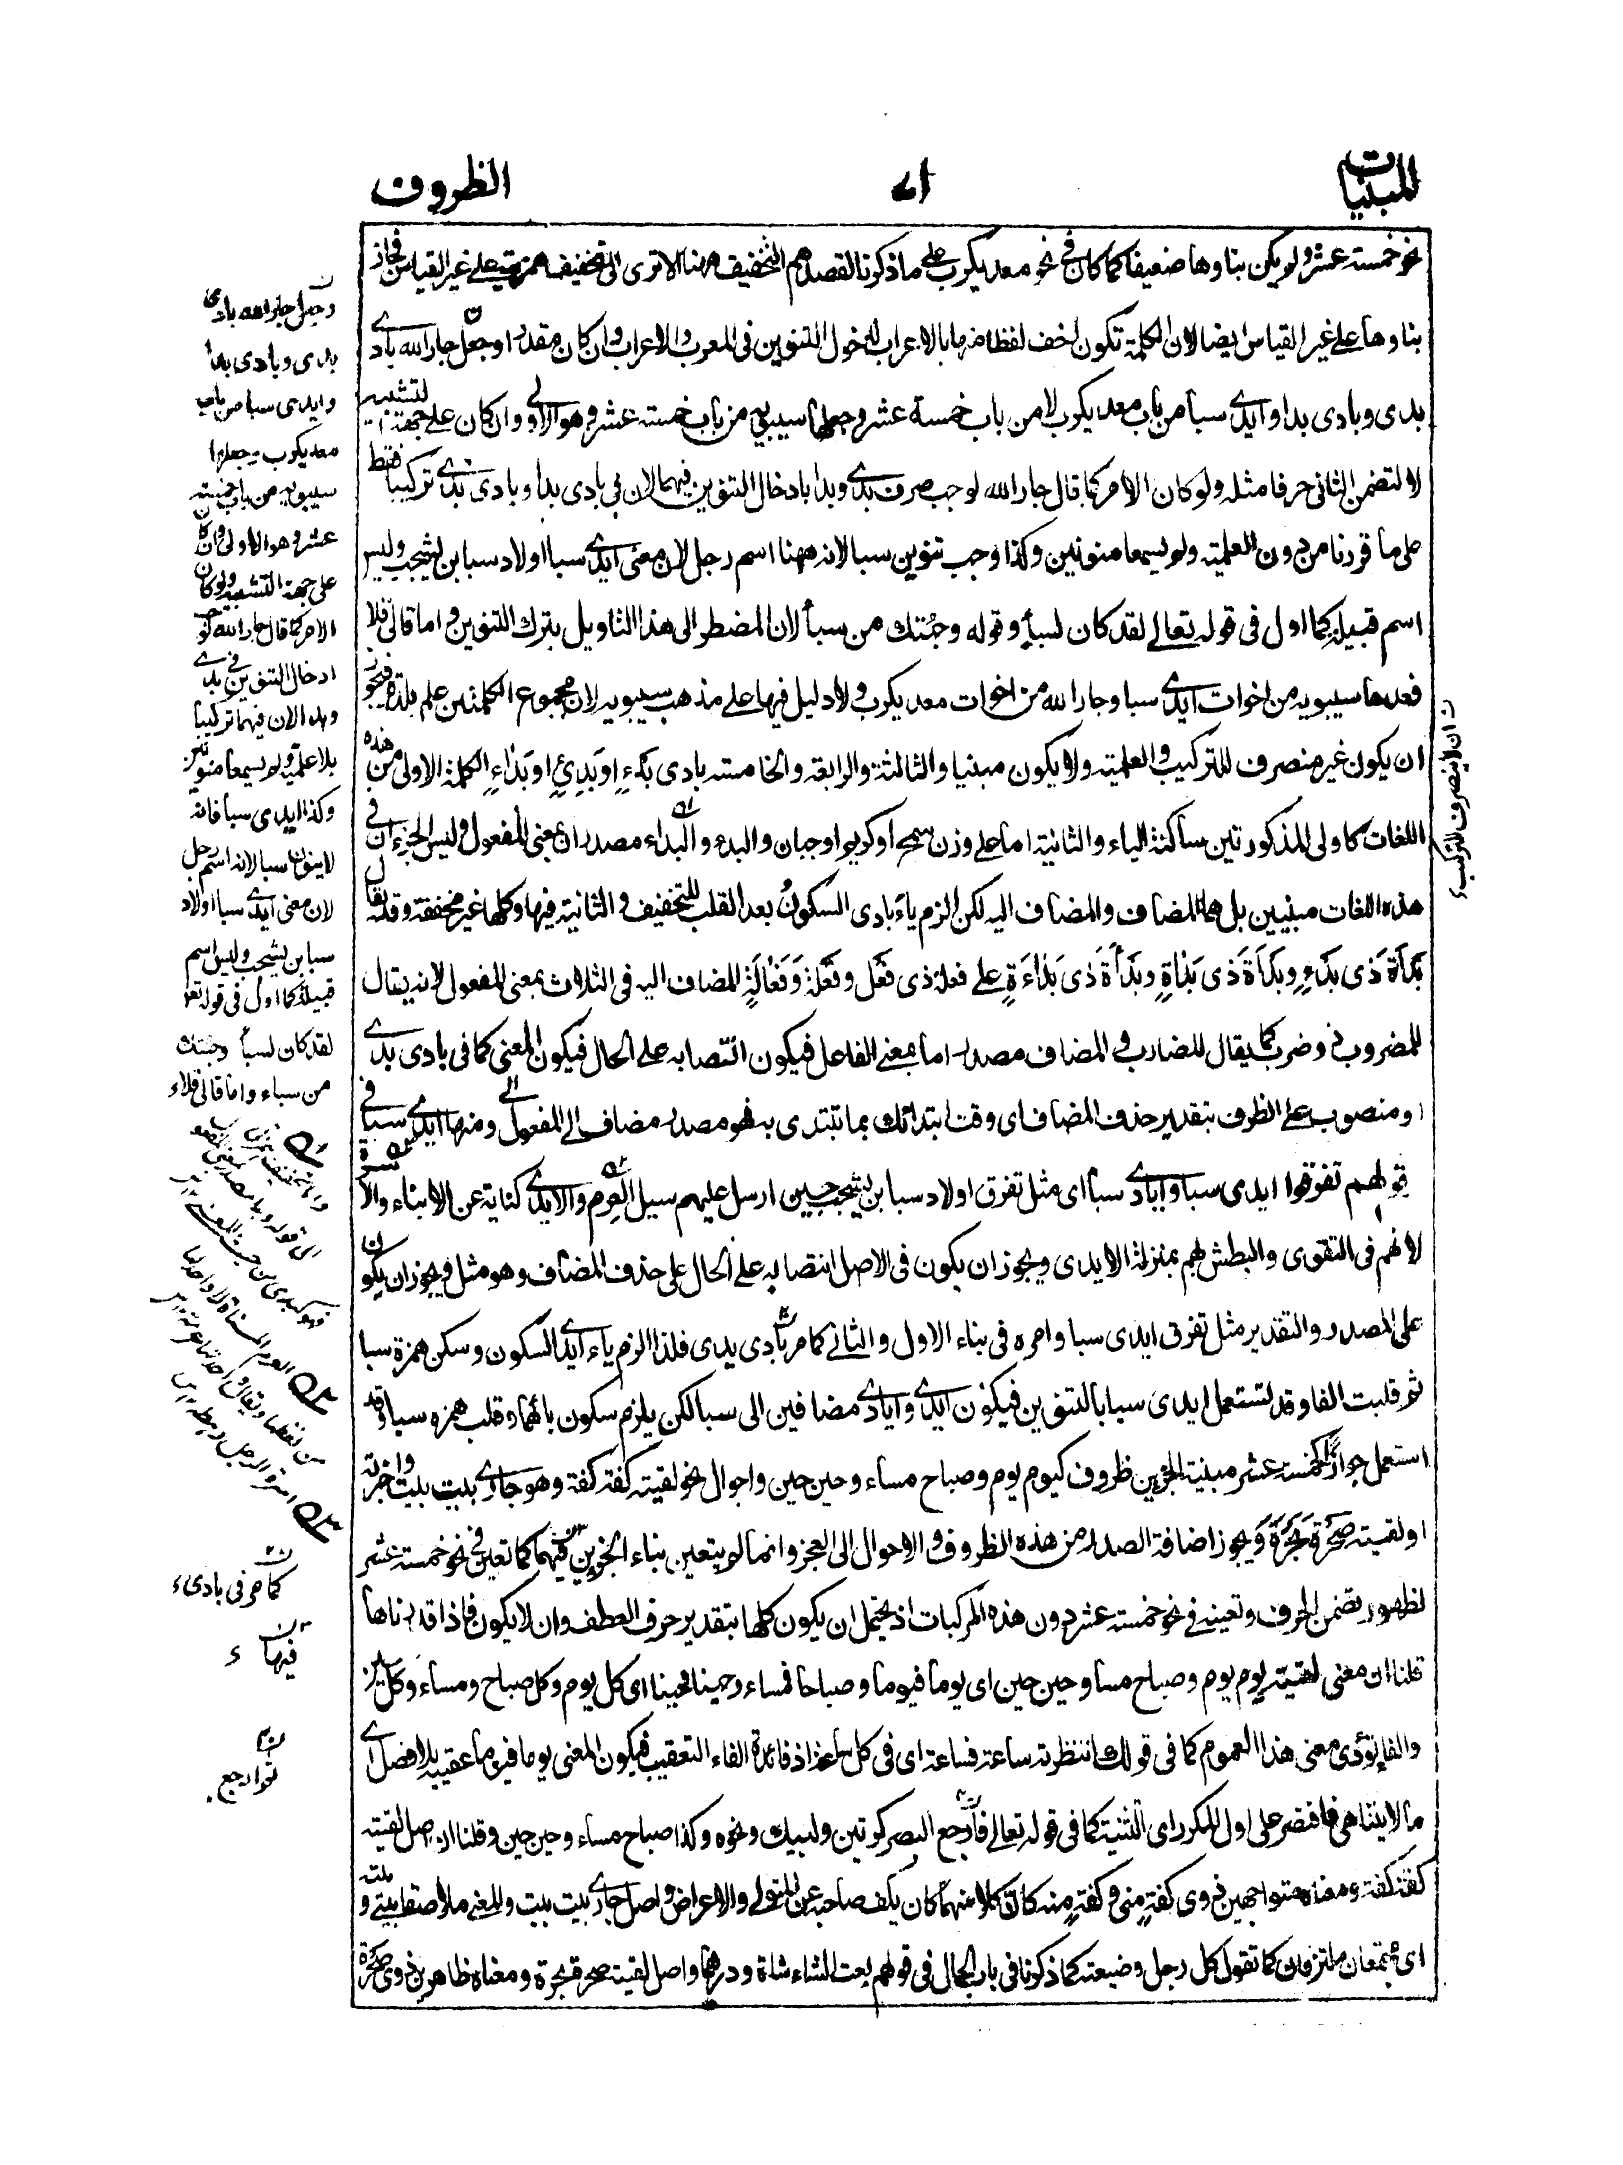 المبنيات
٧١
الظروف
نحو خمسة عشر ولو يكن بناوها ضعيفا كما كان في نحو معديكرب على ما ذكرنا لقصدهم التخفيف ههنا الا ترى الى تخفيف همزتيه على غير القياس فجاز
بناوها على غير القياس ايضا لان الكلمة تكون اخف لفظا منها بالاعراب لدخول التنوين في المعرب والاعراب وان كان مقدرا وجعل جار الله بادى
بدى وبادى بدا وايدى سبا من باب معديكرب لا من باب خمسة عشر وجعلها سيبويه من باب خمسة عشر وهو الاولى وان كان على جهة التشبيه
لا لتضمن الثانى حرفا مثله ولو كان الامر كما قال جار الله لوجب صرف بدى وبدا بادخال التنوين فيهما لان في بادى بدا وبادى بدى تركيبا فقط
على ما قررنا من دون العلمية ولو يسمعا منونين وكذا وجب تنوين سبا لانه ههنا اسم رجل لان معنى ايدى سبا اولاد سبا بن يشجب وليس
اسم قبيلة كما اول في قوله تعالى لقد كان لسبأ وقوله وجئتك من سبأ لان المضطر الى هذا التاويل بترك التنوين واما قالى قلا
فعدها سيبويه من اخوات ايدى سبا وجار الله من اخوات معديكرب ولا دليل فيها على مذهب سيبويه لان مجموع الكلمتين علم بلدة فيجوز
ان يكون غير منصرف للتركيب والعلمية ولا يكون مبنيا والثالثة والرابعة والخامسة بادى بدء او بدئ او بداء الكلمة الاولى من هذه
اللغات كاولى المذكورتين ساكنة الياء والثانية اما على وزن سمح او كريم او جبان والبدء والبداء مصدران بمعنى المفعول وليس الجزءان في
هذه اللغات مبنيين بل هما المضاف والمضاف اليه لكن الزم ياء بادى السكون بعد القلب للتخفيف والثانية فيها وكلها غير مخففة وقد يقال
بدأة ذى بدء وبدأة ذى بدأة وبدأة ذى بداءة على فعلة ذى فعل وفعلة وفعالة المضاف اليه في الثلاث بمعنى المفعول لانه يقال
للمضروب ذو ضرب كما يقال للضارب والمضاف مصدر اما بمعنى الفاعل فيكون انتصابه على الحال فيكون المعنى كما في بادى بدى
او منصوب على الظرف بتقدير حذف المضاف اى وقت ابتدائك بما تبتدى به فهو مصدر مضاف الى المفعول ومنها ايدى سبا في
قولهم تفرقوا ايدى سبا وايادى سبا اى مثل تفرق اولاد سبا بن يشجب حين ارسل عليهم سيل العرم والايدى كناية عن الابناء والاسرة
لانهم في التقوى والبطش بهم بمنزلة الايدى ويجوز ان يكون في الاصل انتصابه على الحال على حذف المضاف وهو مثل ويجوز ان يكون
على المصدر والتقدير مثل تفرق ايدى سبا وامره في بناء الاول والثانى كما مر بادى بدى فلذا الزم ياء ايدى السكون وسكن همزة سبا
ثم قلبت الفا وقد تستعمل ايدى سبا بالتنوين فيكون ايدى وايادى مضافين الى سبا لكن يلزم سكون يائهما وقلب همزه سبا وقد
استعمل جوازا كخمسة عشر مبنية الجزءين ظروف كيوم يوم وصباح مساء وحين حين واحوال نحو لقيته كفة كفة وهو جارى بيت بيت واخبرته
او لقيته صحرة بحرة ويجوز اضافة الصدر من هذه الظروف والاحوال الى العجز وانما لو يتعين بناء الجزءين فيهما كما تعين في نحو خمسة عشر
لظهور تضمن الحرف وتعينه في نحو خمسة عشر دون هذه المركبات اذ يحتمل ان يكون كلها بتقدير حرف العطف وان لا يكون فاذا قدرناها
قلنا ان معنى لقيته يوم يوم وصباح مسا وحين حين اى يوما فيوما وصباحا فمساء وحينا فحينا اى كل يوم وكل صباح ومساء وكل حين
والفا يؤدى معنى هذا العموم كما في قولك انتظرته ساعة فساعة اى في كل ساعة اذ فائدة الفاء التعقيب فيكون المعنى يوما فيوما عقيبه بلا فصل الى
ما لا يتناهى فاقتصر على اول المكرر اى التثنية كما في قوله تعالى فارجع البصر كرتين ولبيك ونحوه وكذا صباح مساء وحين حين وقلنا ان اصل لقيته
كفة كفة ومعناه متواجهين ذوى كفة منى وكفة منه كان كلا منهما كان يكف صاحبه عن التولى والاعراض واصل جارى بيت بيت والمعنى ملاصقا بيتى و
اى مجتمعان ملتزقان كما تقول كل رجل وضيعته كما ذكرنا في باب الحال في قولهم بعت الشاء شاة ودرهما واصل لقيته صحرة بحرة ومعناه ظاهرين ذوى صحرة
وجعل جار الله بادى
بدى وبادى بدا
وايدى سبا من باب
معديكرب وجعلها
سيبويه من باب خمسة
عشر وهو الاولى وان كان
على جهة التشبيه ولو كان
الامر كما قال جار الله لوجب
ادخال التنوين في بدى
وبدا لان فيهما تركيبا
بلا علمية ولو يسمعا منونين
وكذا ايدى سبا فانه
لاينون سبا لانه اسم رجل
لان معنى ايدى سبا اولاد
سبا بن يشجب وليس اسم
قبيلة كما اول في قوله تعا
لقد كان لسبأ وجئتك
من سباء واما قالى قلاء
كما مر في بادىء
فيها ء
ثم ارجع
ان لا ينصرف للتركيب ء